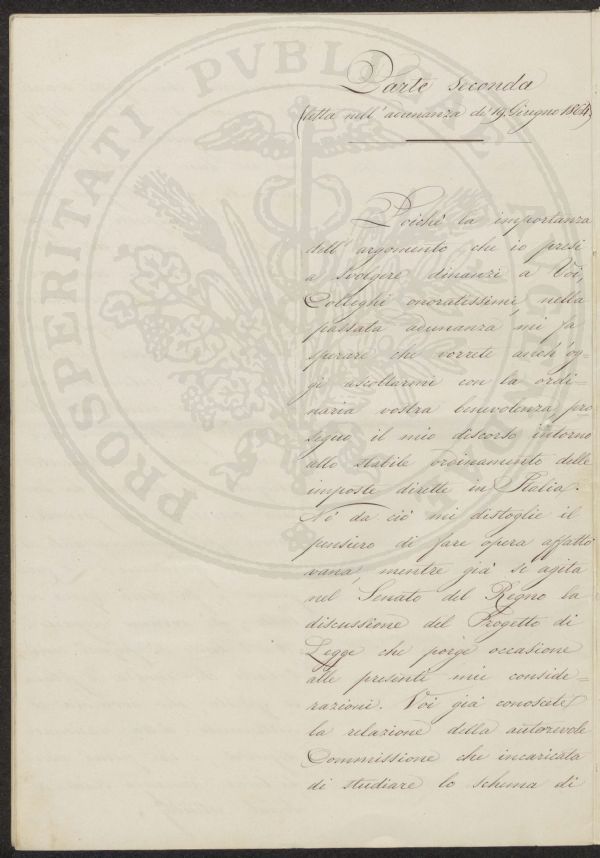 Parte seconda
(letta nell' adunanza di 19. Giugno 1864)
Poichè la importanza
dell' argomento che io presi
a svolgere dinanzi a Voi,
Colleghi onoratissimi, nella
passata adunanza mi fa
sperare che vorrete anch' og-
gi ascoltarmi con la ordi=
naria vostra benevolenza, pro
seguo il mio discorso intorno
allo stabile ordinamento delle
imposte dirette in Italia.
Nè da ciò mi distoglie il
pensiero di fare opera affatto
vana, mentre già si agita
nel Senato del Regno la
discussione del Progetto di
Legge che porge occasione
alle presenti mie conside=
razioni. Voi già conoscete
la relazione della autorevole
Commissione che incaricata
di studiare lo schema di
PROSPERITATI PVBLICAE